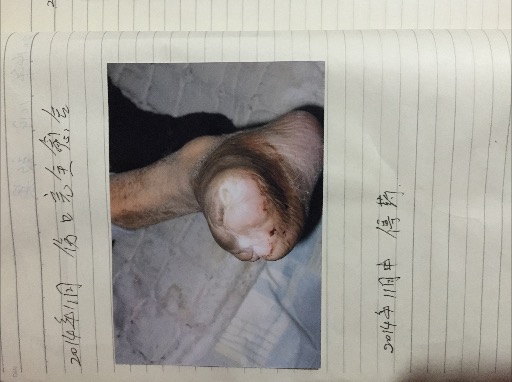 2014年11月 伤口完全愈合
2014年11月中 停药